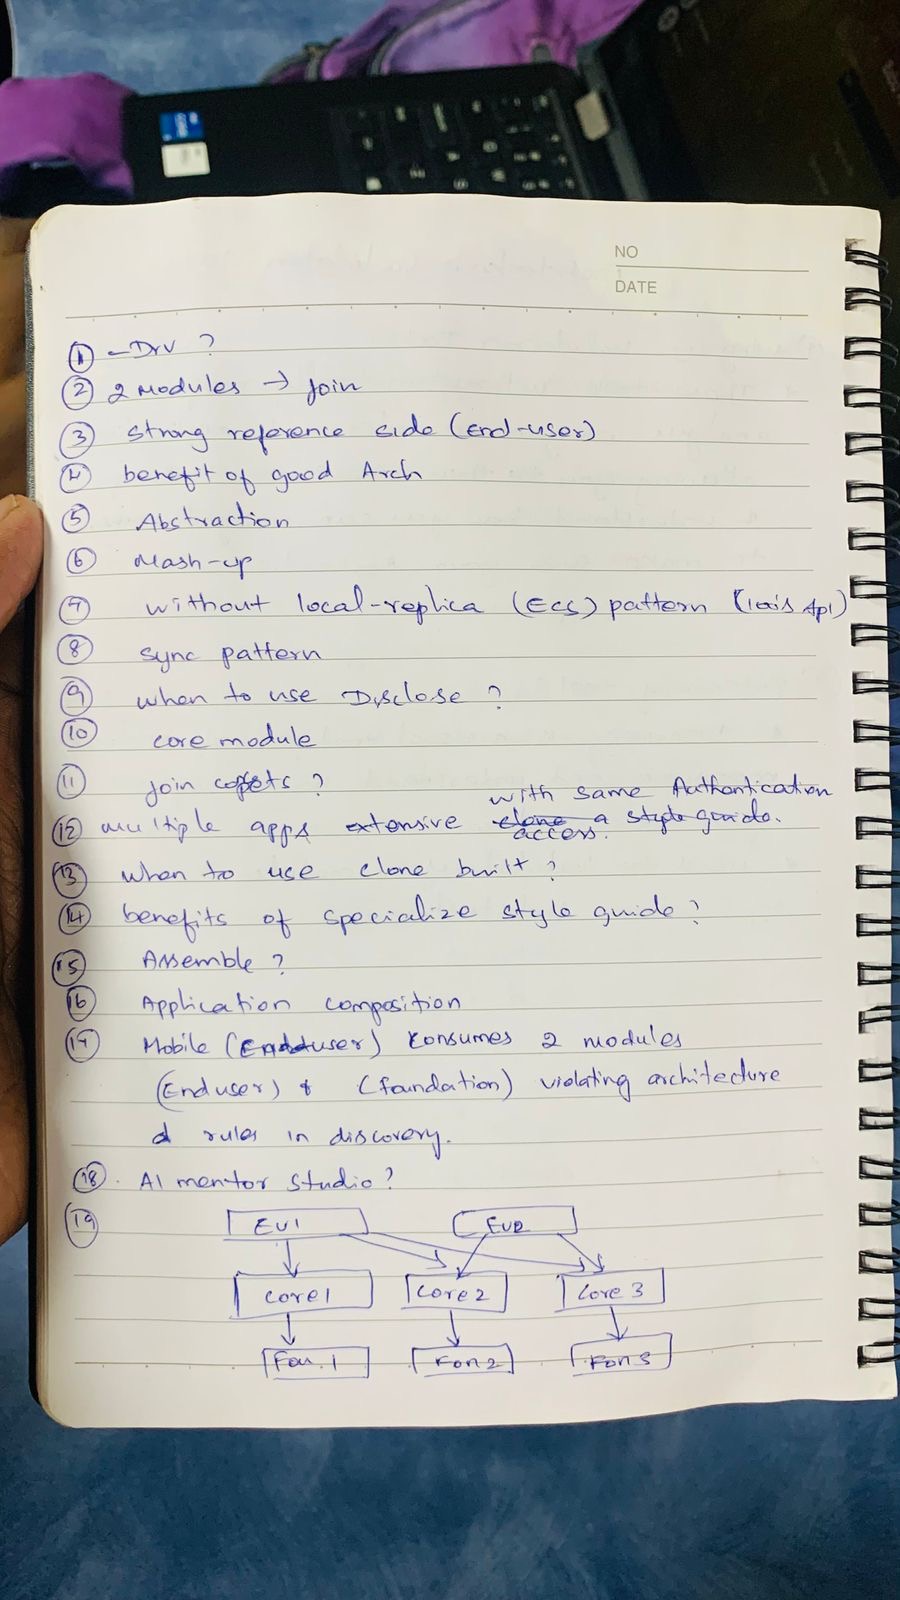 NO
DATE
① -Drv ?
② 2 Modules → join
③ strong reference side (End-user)
④ benefit of good Arch
⑤ Abstraction
⑥ Mash-up
⑦ without local-replica (ECS) pattern ( Api)
⑧ sync pattern
⑨ when to use Disclose ?
⑩ core module
⑪ join ?
with same Authentication
⑫ multiple apps extensive clone a style guide.
access.
⑬ when to use clone built ?
⑭ benefits of specialize style guide ?
⑮ Assemble ?
⑯ Application composition
⑰ Mobile (Enduser) consumes 2 modules
(Enduser) & (foundation) violating architecture
d rules in discovery.
⑱. AI mentor studio ?
⑲ EU1 EU2
core1 core2 core 3
Fou.1 Fon2 Fon3